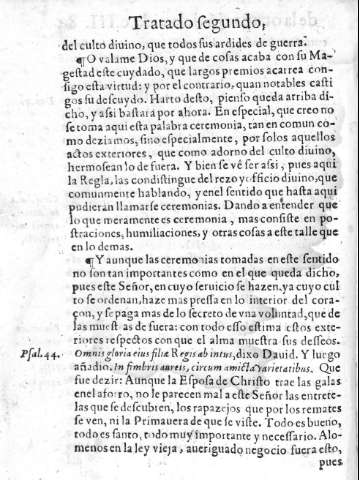 Tratado segundo,
del culto diuino, que todos sus ardides de guerra.
¶O valame Dios, y que de cosas acaba con su Ma-
gestad este cuydado, que largos premios acarrea con-
sigo esta virtud: y por el contrario, quan notables casti
gos su descuydo. Harto desto, pienso queda arriba di-
cho, y assi bastara por ahora. En especial, que creo no
se toma aqui esta palabra ceremonia, tan en comun co-
mo deziamos, sino especialmente, por solos aquellos
actos exteriores, que como adorno del culto diuino,
hermosean lo de fuera. Y bien se vè ser assi, pues aqui
la Regla, las condistingue del rezo y officio diuino, que
comunmente hablando, y en el sentido que hasta aqui
pudieran llamarse ceremonias. Dando a entender que
lo que meramente es ceremonia, mas consiste en po-
straciones, humiliaciones, y otras cosas a este talle que
en lo demas.
¶Y aunque las ceremonias tomadas en este sentido
no son tan importantes como en el que queda dicho,
pues este Señor, en cuyo seruicio se hazen, ya cuyo cul
to se ordenan, haze mas pressa en lo interior del cora-
çon, y se paga mas de lo secreto de vna voluntad, que de
las muestras de fuera: con todo esso estima estos exte-
riores respectos con que el alma muestra sus desseos.
Psal. 44. Omnis gloria eius filiæ Regis ab intus, dixo Dauid. Y luego
añadio. In fimbrijs aureis, circum amicta varietatibus. Que
fue dezir: Aunque la Esposa de Christo trae las galas
en el aforro, no le parecen mal a este Señor las entrete-
las que se descubren, los rapazejos que por los remates
se ven, ni la Primauera de que se viste. Todo es bueno,
todo es santo, todo muy importante y necessario. Alo-
menos en la ley vieja, aueriguado negocio fuera esto,
pues